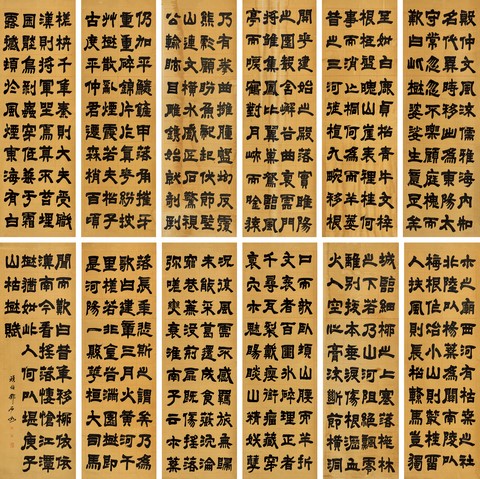 殷仲文風流儒雅海內知
名代異時移出為東陽太
守常忽忽不樂顧庭槐而
歎曰此樹婆娑生意盡矣
至如白鹿貞松青牛文梓
根柢盤魄山崖表裏桂何
事而消亡桐何為而半死
昔之三河徙植九畹移根
開花建始之殿落實睢陽
之園聲含嶰谷曲抱雲門
將雛集鳳比翼巢鴛臨風
亭而唳鶴對月峽而吟猿
乃有拳曲擁腫盤坳反覆
熊彪顧盼魚龍起伏節豎
山連文橫水蹙匠石驚視
公輸眩目雕鐫始就剞劂
仍加平鱗鏟甲落角摧牙
重重碎錦片片真花紛披
草樹散亂煙霞若夫松子
古度平仲君遷森梢百頃
槎枿千年秦則大夫受職
漢則將軍坐焉莫不苔埋
菌壓鳥剝蟲穿低垂於霜
露撼頓於風煙東海有白
木之廟西河有枯桑之社
北陸以楊葉為關南陵以
梅根作冶小山則叢桂留
人扶風則長松繫馬豈獨
城臨細柳之上塞落桃林
之下若乃山河阻絕飄零
離別拔本垂淚傷根瀝血
火入空心膏流斷節橫洞
口而欹臥頓山腰而半折
文衺者百圍冰碎理正者
千尋瓦裂載癭銜瘤藏穿
抱穴木魅睗睒山精妖孽
況復風雲不感羈旅無歸
未能采葛還成食薇沉淪
窮巷蕪沒荊扉既傷搖落
彌嗟變衰淮南子云木葉
落長年悲斯之謂矣乃為
歌曰建章三月火黃河千
里槎若非金谷滿園樹即
是河陽一縣花桓大司馬
聞而歎曰昔年移柳依依
漢南今看搖落悽愴江潭
樹猶如此人何以堪庾子
山枯樹賦
頑伯鄧石如